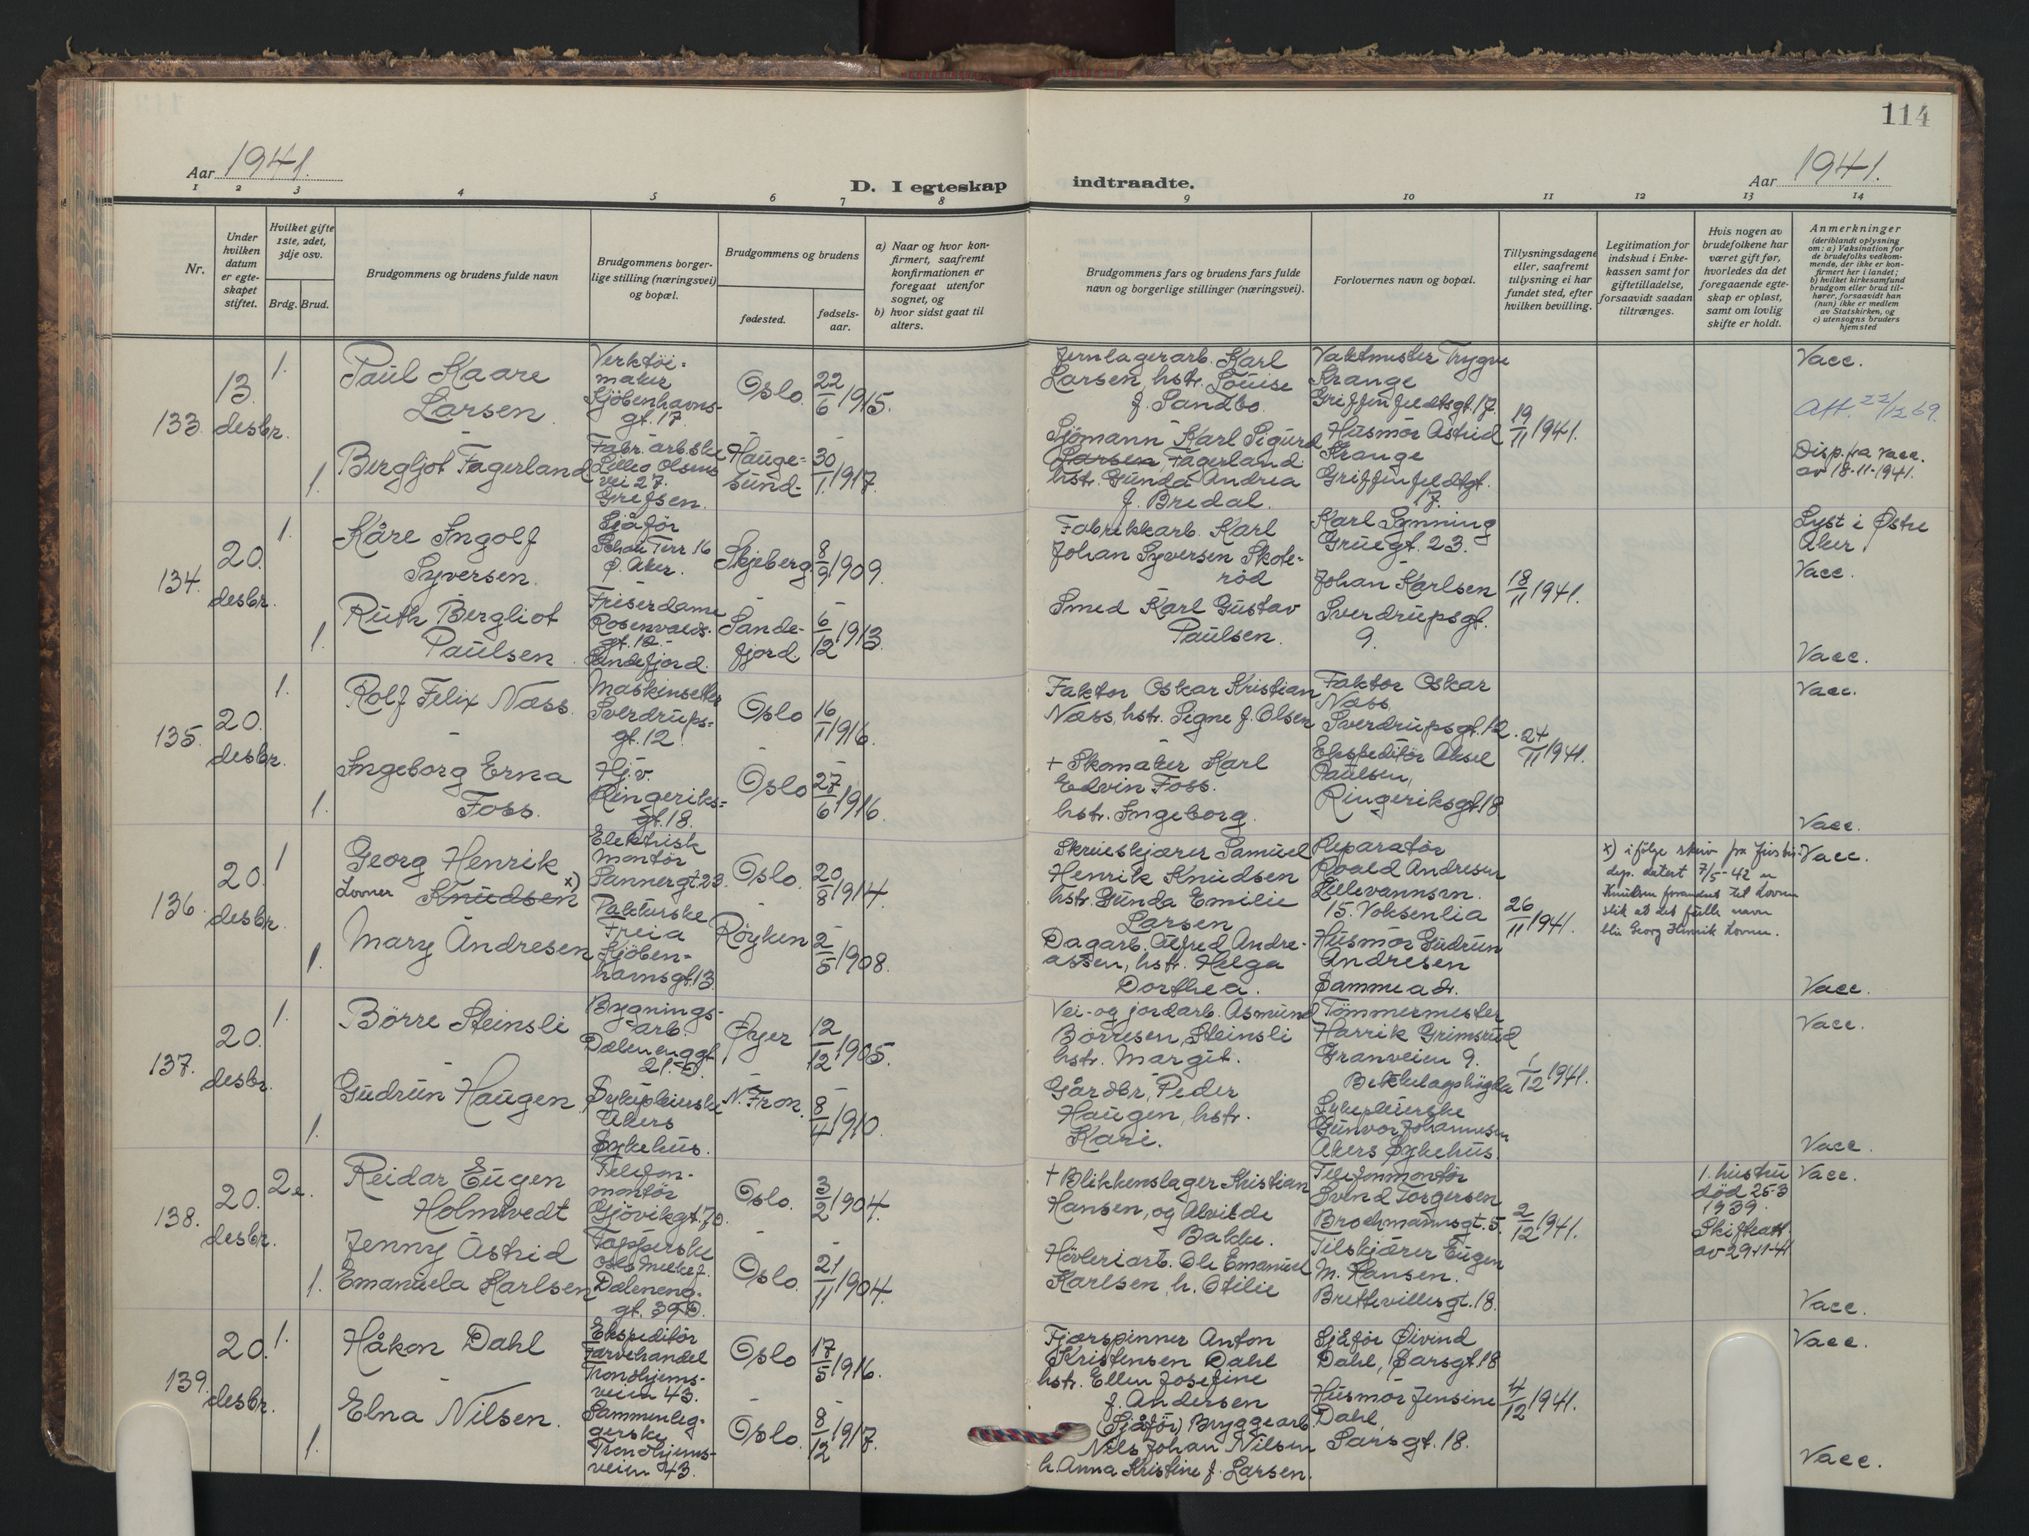 114
Aar 1941.
D. I egteskap indtraadte.
Aar 1941.
1 2 3 4 5 6 7 8 9 10 11 12 13 14
Nr.
Under hvilken datum er egteskapet stiftet.
Hvilket gifte 1ste, 2det, 3dje osv.
Brdg. Brud.
Brudgommens og brudens fulde navn
Brudgommens borgerlige stilling (næringsvei) og bopæl.
Brudgommens og brudens
fødested.
fødselsaar.
a) Naar og hvor konfirmert, saafremt konfirmationen er foregaat utenfor sognet, og
b) hvor sidst gaat til alters.
Brudgommens fars og brudens fars fulde navn og borgerlige stillinger (næringsvei).
Forlovernes navn og bopæl.
Tillysningsdagene eller, saafremt tillysning ei har fundet sted, efter hvilken bevilling.
Legitimation for indskud i Enkekassen samt for giftetilladelse, forsaavidt saadan tiltrænges.
Hvis nogen av brudefolkene har været gift før, hvorledes da det foregaaende egteskap er opløst, samt om lovlig skifte er holdt.
Anmerkninger
(deriblandt oplysning om: a) Vaksination for de brudefolks vedkommende, der ikke er konfirmert her i landet; b) hvilket kirkesamfund brudgom eller brud tilhører, forsaavidt han (hun) ikke er medlem av Statskirken, og c) utensogns bruders hjemsted
133.
13. desbr.
1.
Paul Kaare Larsen.
Verktøimaker
Kjöbenhavnsgt. 17.
Oslo. 22/6 1915.
Jernlagerarb. Karl Larsen, hstr. Louise f. Sandbo.
Vaktmester Trygve Krange
Griffenfeldtsgt. 17.
19/11 1941.
Vacc.
Att. 22/12 69.
1.
Bergljot Fagerland
Fabr. arb.ske
Lilleo Olsens vei 27.
Grefsen.
Haugesund. 30/1 1917.
Sjömann Karl Sigurd Larsen, Fagerland. hstr. Gunda Andrea f. Bredal.
Husmor Astrid Krange
Griffenfeldtgt. 17.
Disp. fra vacc. av 18-11-1941.
134.
20. desbr.
1.
Kåre Ingolf Syversen.
Sjåför
Schou Terr. 16
Ø. Aker.
Skjeberg. 8/9 1909.
Fabrikkarb. Karl Johan Syversen Skoleröd
Karl Synning
Gruegt. 23.
18/11 1941.
Lyst i Østre Aker.
Vacc.
1.
Ruth Bergliot Paulsen.
Friserdame
Rosenvolds gt. 12.
Sandefjord.
Sandefjord. 6/12 1913.
Smed Karl Gustav Paulsen.
Johan Karlsen
Sverdrupsgt. 9.
Vacc.
135.
20. desbr.
1.
Rolf Felix Næss.
Maskinsetter
Sverdrupsgt. 12.
Oslo 16/1 1916.
Faktor Oskar Kristian Næss, hstr. Signe f. Olsen
Faktor Oskar Næss
Sverdrupsgt. 12.
24/11 1941.
Vacc.
1.
Ingeborg Erna Foss.
Hj.v.
Ringeriksgt. 18.
Oslo 27/6 1916.
+ Skomaker Karl Edvin Foss. hstr. Ingeborg.
Ekspeditör Aksel Paulsen,
Ringeriksgt. 18
Vacc.
136.
20. desbr.
1
Georg Henrik Knudsen x)
Lovner
Elektrisk Montör
Sannergt. 23.
Oslo. 20/8 1914.
Skrueskjærer Samuel Henrik Knudsen hstr. Gunda Emilie Larsen
Reparatör Roald Andresen
Lillevannsvn. 15. Voksenlia
26/11 1941.
x) ifølge skriv fra justisdep. datert 7/5-42 er Knudsen forandret til Lovner slik at det fulle navn blir Georg Henrik Lovner.
Vacc.
1.
Mary Andresen
Pakkerske
Freia
Kjöbenhavnsgt. 13.
Röyken 2/5 1908.
Dagarb. Alfred Andreassen, hstr. Helga Dorthea.
Husmor Gudrun Andresen
Samme adr.
Vacc.
137.
20. desbr.
1.
Börre Steinsli
Bygningsarb.
Dælenenggt. 21.
Øyer 12/12 1905.
Vei- og jordarb. Asmund Börresen, Steinsli hstr. Margit.
Tömmermester Harrik Grimsrud
Granveien 9.
Bekkelagshögda
1/12 1941.
Vacc.
1.
Gudrun Haugen
Sykepleierske
Akers Sykehus.
N. Fron. 8/4 1910.
Gårdbr, Peder Haugen, hstr. Kari.
Sykepleierske Gunvor Johannesen
Akers Sykehus.
Vacc.
138.
20. desbr.
2e.
Reidar Eugen Holmtvedt
Telefonmontör
Gjövikgt. 70.
Oslo. 3/2 1904.
+ Blikkenslager Kristian Hansen, og Alvilde Bakke.
Telefonmontör Svend Torgersen
Brochmannsgt. 5.
2/12 1941.
1. hustru död 25-3 1939. Skifteatt. av 29-11-41
Vacc.
1.
Jenny Astrid Emanuela Karlsen
Tapperske
Oslo Melkef.
Dælenenggt. 39D.
Oslo. 21/11 1904.
Hövleriarb. Ole Emanuel Karlsen, h. Otilie
Tilskjærer Eugen M. Hansen.
Brettevillesgt. 18.
Vacc.
139.
20. desbr.
1.
Håkon Dahl
Ekspeditör
Farvehandel
Trondhjemsveien 43.
Oslo. 17/5 1916.
Fjærspinner Anton Kristensen Dahl hstr. Ellen Josefine f. Andersen
Sjåför Øivind Dahl, Sarsgt. 18
4/12 1941.
Vacc.
1.
Elna Nilsen.
Sammenleggerske
Trondhjemsveien 43.
Oslo. 8/12 1917.
(Sjåför) Bryggearb. Nils Johan Nilsen h. Anna Kristine f. Larsen.
Husmor Jensine Dahl,
Sarsgt. 18.
Vacc.